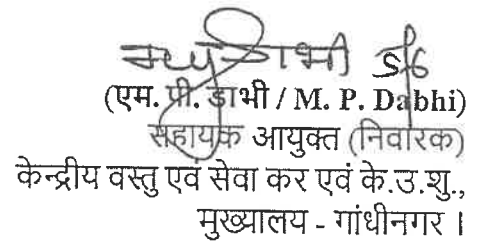 (एम. प्री. डाभी / M. P. Dabhi)
सहायक आयुक्त (निवारक)
केन्द्रीय वस्तु एवं सेवा कर एवं के.उ.शु.,
मुख्यालय - गांधीनगर ।